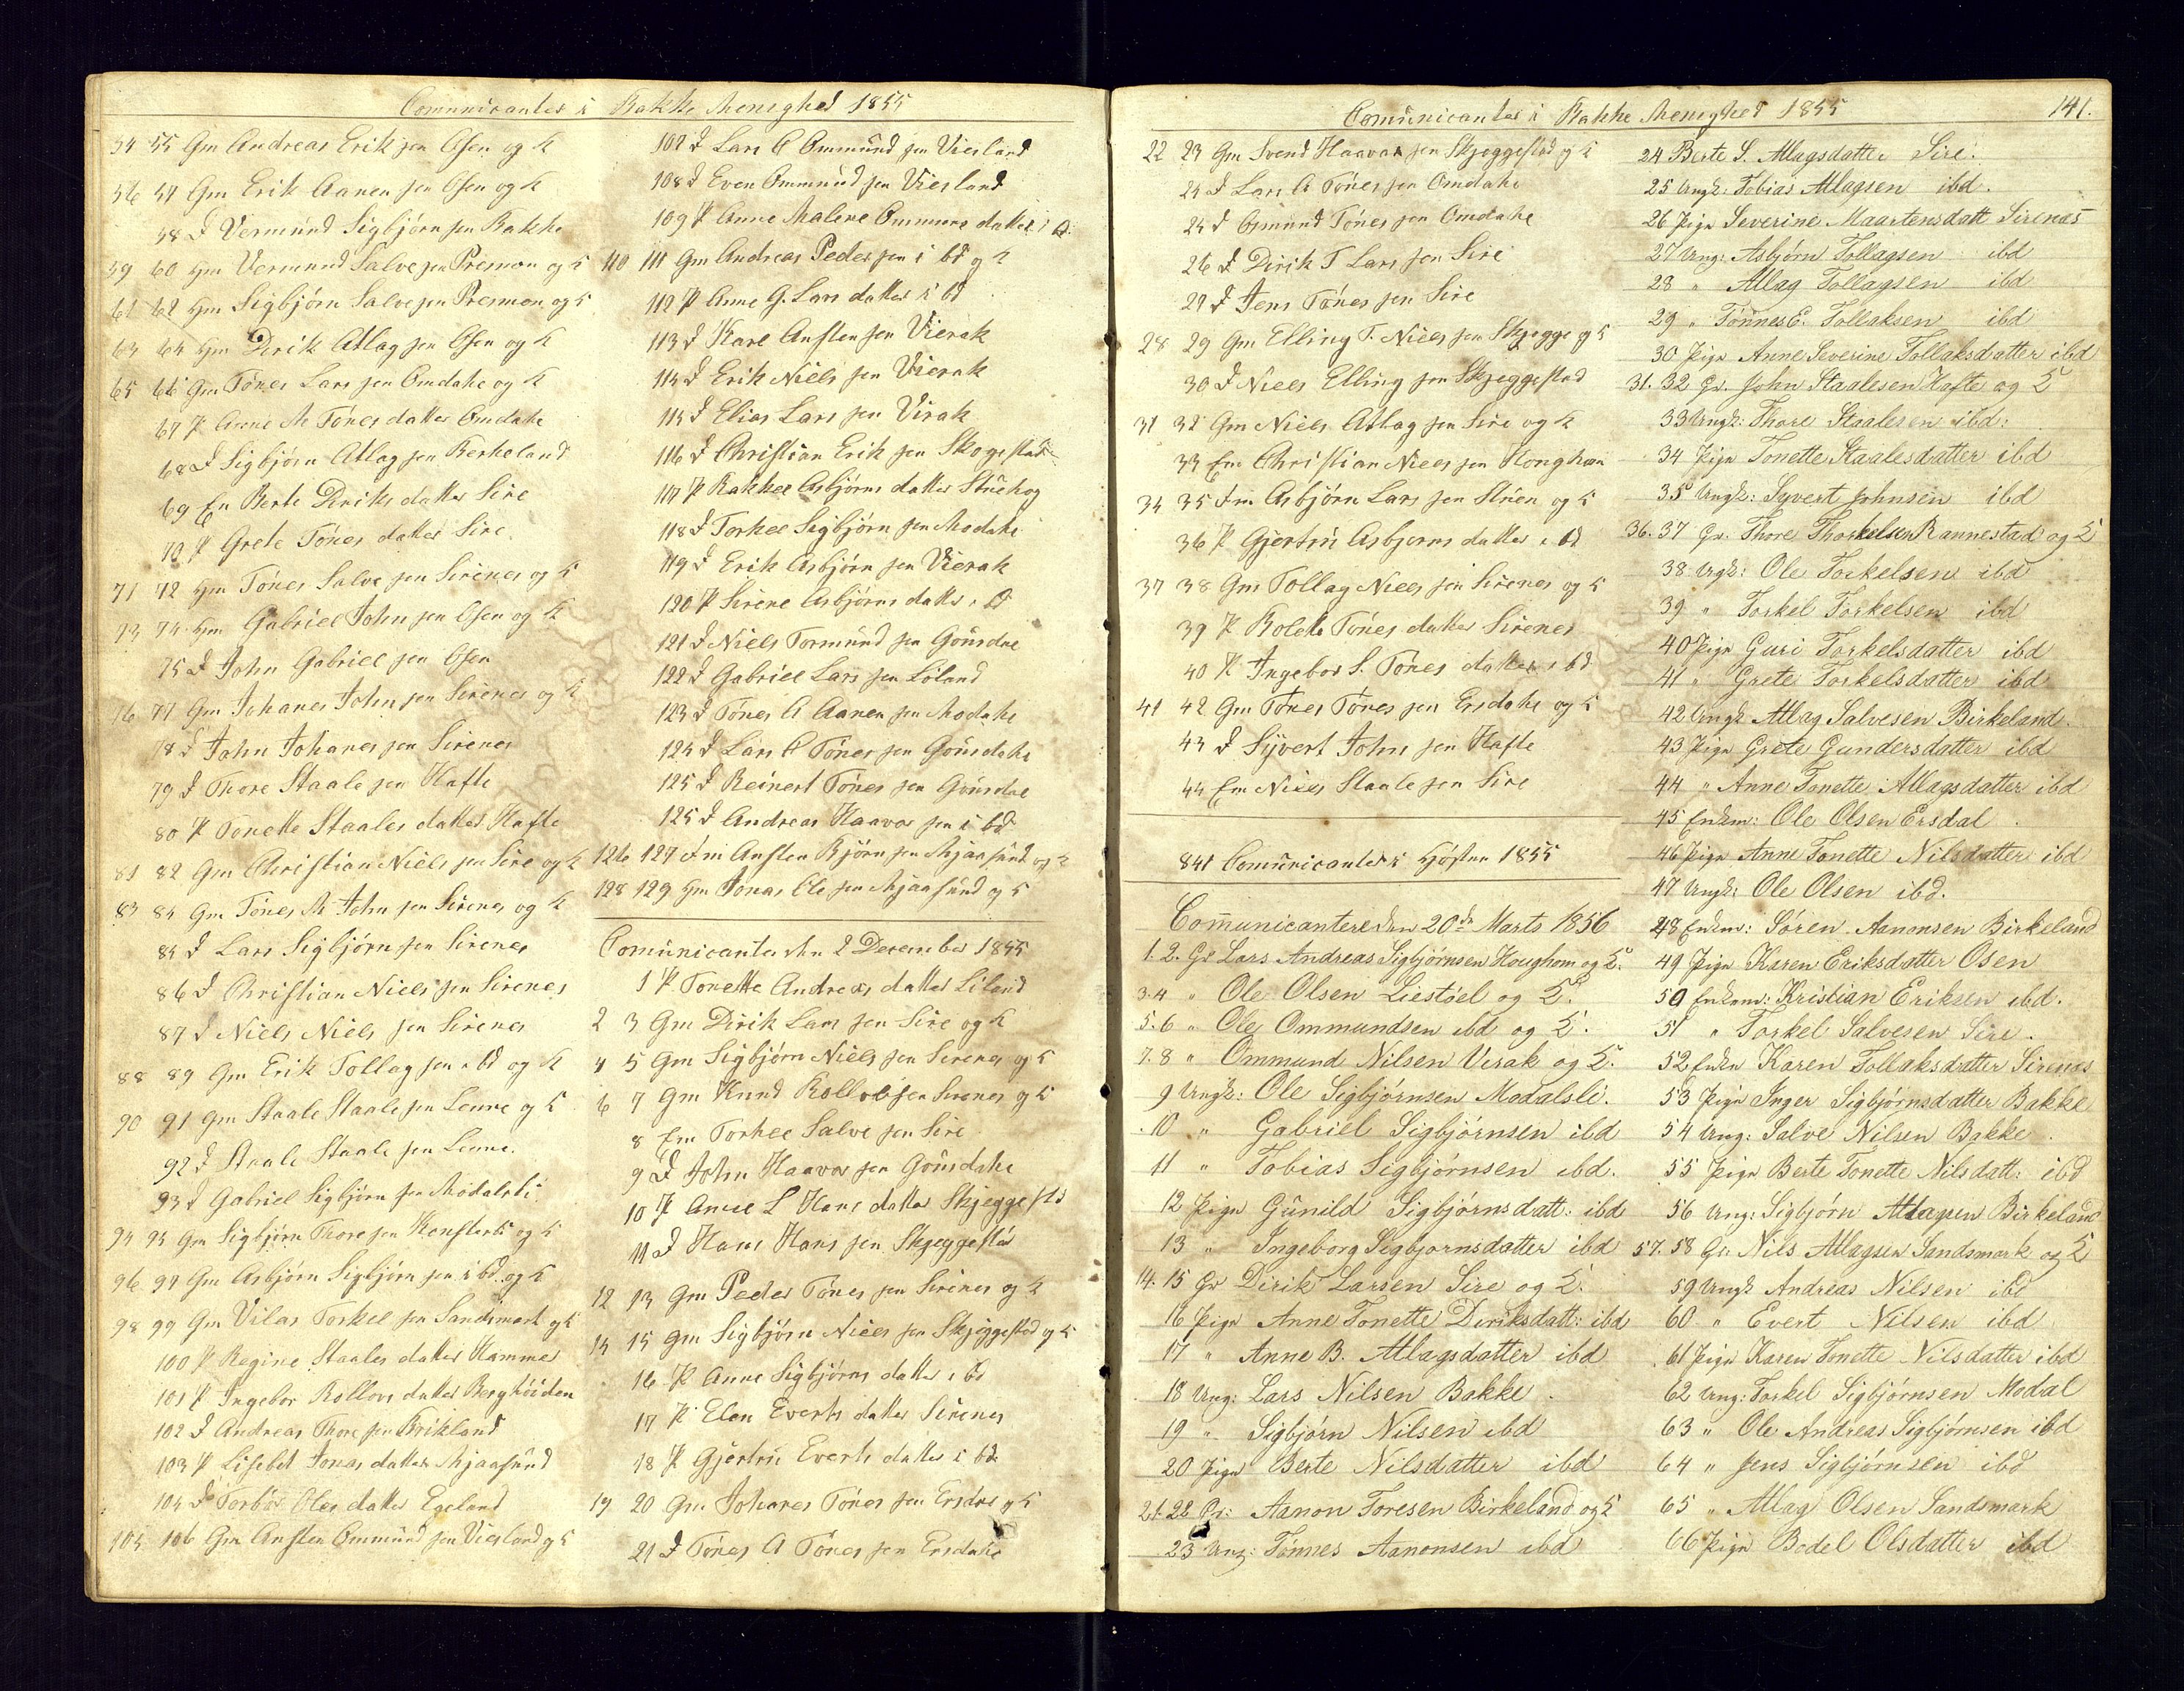 Comunicantes i Bakke Menighed 1855
54 55 Gm Andreas Erik sen Osen og K
56 57 Gm Erik Aanen sen Osen og K
58 J Vermund Sigbjörn sen Bakke
59 60 Gm Vermund Salve sen Presmon og K
61 62 Gm Sigbjörn Salve sen Presmon og K
63 64 Gm Dirik Atlag sen Osen og K
65 66 Gm Tönes Lars sen Omdahe og K
67 P Anne M Tönes datter Omdahe
68 J Sigbjörn Atlag sen Berkeland
69 En Berte Diriks datter Sire
70 P Grete Tönes datter Sire
71 72 Gm Tönes Salve sen Sirenes og K
73 74 Gm Gabriel John sen Osen og K
75 J John Gabriel sen Osen
76 77 Gm Johanes John sen Sirenes og K
78 J John Johanes sen Sirenes
79 J Thore Staale sen Hafte
80 P Tonette Staales datter Hafte
81 82 Gm Christian Niels sen Sire og K
83 84 Gm Tönes M John sen Sirenes og K
85 J Lars Sigbjörn sen Sirenes
86 J Christian Niels sen Sirenes
87 J Niels Niels sen Sirenes
88 89 Gm Erik Tollag sen i bd og K
90 91 Gm Staale Staale sen Lenne og K
92 J Staale Staale sen Lenne
93 J Gabriel Sigbjörn sen Modalsli
94 95 Gm Sigbjörn Thore sen og K
96 97 Gm Asbjörn Sigbjörn sen i bd og K
98 99 Gm Vilas Torkel sen Sandsmark og K
100 P Regine Staales datter Hammer
101 P Ingebor Rollovs datter
102 J Andreas Thore sen Birkland
103 P Lisebet Jonas datter Mjaasund
104 Torbor Oles datter Egeland
105 106 Gm Austen Ommund sen Viesland og K
107 J Lars O Ommund sen Viesland
108 J Even Ommund sen Viesland
109 P Anne Malene Ommuns datter i bd
110 111 Gm Andreas Peder sen i bd og K
112 P Anne G. Lars datter i bd
113 J Kare Austen sen Vierak
114 J Erik Niels sen Vierak
115 J Elias Lars sen Virak
116 J Christian Erik sen Skogestad
117 P Rakkel Asbjörns datter Stuehog
118 J Torkel Sigbjörn sen Modahe
119 J Erik Asbjörn sen Vierak
120 P Sirene Asbjörns datter i bd
121 J Niels Tormund sen Gousdae
122 J Gabriel Lars sen Löland
123 J Tönes A Aanen sen Modahe
124 J Lars O Tönes sen Gousdahe
125 J Reinert Tönes sen Gousdae
125 J Andreas Haavor sen i bd
126 127 Gm Austen Björn sen Mjaasund og K
128 129 Gm Jonas Ole sen Mjaasund og K
Comunicanter den 2 December 1855
1 P Tonette Andreas datter Liland
2 3 Gm Dirik Lars sen Sire og K
4 5 Gm Sigbjörn Niels sen Sirenes og K
6 7 Gm Knud Rollov sen Sirenes og K
8 Em Torkel Salve sen Sire
9 J John Haavor sen Gousdahe
10 P Anne L Hans datter Skjeggestd
11 J Hans Hans sen Skjeggestd
12 13 Gm Peder Tönes sen Sirenes og K
14 15 Gm Sigbjörn Niels sen Skjeggestad og K
16 P Anne Sigbjörns datter i bd
17 P Elen Everts datter Sirenes
18 P Gjertru Everts datter i bd
19 20 Gm Johanes Tönes sen Ersdae og K
21 J Tönes A Tönes sen Ersdahe
Comunicantes i Bakke Menighed 1855
141.
22 23 Gm Svend Haavar sen Skjeggestad og K
24 J Lars A Tönes sen Omdahe
25 J Osmund Tönes sen Omdahe
26 J Dirik T Lars sen Sire
27 J Jens Tönes sen Sire
28 29 Gm Elling T. Niels sen Skjegge og K
30 J Niels Elling sen Skjeggestad
31 32 Gm Niels Atlag sen Sire og K
33 Em Christian Niels sen Honghom
34 35 Gm Asbjörn Lars sen Stuen og K
36 P Gjertru Asbjorns datter i bd
37 38 Gm Tollag Niels sen Sirenes og K
39 P Bolette Tönes datter Sirenes
40 P Ingebor S. Tönes datter i bd
41 42 Gm Tönes Tönes sen Ersdahe og K
43 J Syvert John sen Hafte
44 Em Niels Staale sen Sire
841 Comunicanter i Hösten 1855
Communicantere den 20de Marts 1856
1. 2. Gr Lars Andreas Sigbjörnsen Houghom og K.
3. 4 " Ole Olsen Liestöel og K.
5. 6 " Ole Ommundsen ibd og K.
7. 8 " Ommund Nilsen Virak og K.
9 Ungk: Ole Sigbjörnsen Modalsli.
10 " Gabriel Sigbjörnsen ibd
11 " Tobias Sigbjörnsen ibd.
12 Pige Gunild Sigbjörnsdatt: ibd
13 " Ingeborg Sigbjornsdatter ibd
14. 15 Gr Dirik Larsen Sire og K.
16 Pige Anne Tonette Diriksdatt: ibd
17 " Anne B. Atlagsdatter ibd
18 Ung: Lars Nilsen Bakke.
19 " Sigbjörn Nilsen ibd
20 Pige Berte Nilsdatter ibd
21. 22 Gr: Aanon Toresen Birkeland og K
23 Ung: Tönnes Aanonsen ibd
24 Berte S. Atlagsdatter Sire.
25 Ungk: Tobias Atlagsen ibd.
26 Pige Severine Maartensdatt Sirenæs
27 Ung: Asbjörn Tollagsen ibd
28 " Atlag Tollagsen ibd
29 " Tönnes E. Tollaksen ibd
30 Pige Anne Severine Tollaksdatter ibd
31. 32 Gr. John Staalesen Hafte og K
33 Ungk: Thore Staalesen ibd:
34 Pige Tonette Staalesdatter ibd
35 Ungk: Syvert Johnsen ibd
36. 37 Gr. Thore Thorkelsen Rannestad og K
38 Ugk: Ole Torkelsen ibd
39 " Torkel Torkelsen ibd
40 Pige Guri Torkelsdatter ibd
41 " Grete Torkelsdatter ibd
42 Ungk Atlag Salvesen Birkeland.
43 Pige Grete Gundersdatter ibd
44 " Anne Tonette Atlagsdatter ibd
45 Enkm: Ole Olsen Ersdal.
46 Pige Anne Tonette Nilsdatter ibd
47 Ungk: Ole Olsen ibd.
48 Enkm: Sören Aanonsen Birkeland
49 Pige Karen Eriksdatter Osen
50 Enkem: Kristian Eriksen ibd.
51 " Torkel Salvesen Sire.
52 Enke Karen Tollaksdatter Sirenæs
53 Pige Inger Sigbjörnsdatter Bakke
54 Ung: Salve Nilsen Bakke.
55 Pige Berte Tonette Nilsdatt: ibd
56 Ung: Sigbjörn Atlagsen Birkeland
57. 58 Gr: Nils Atlagsen Sandsmark og K
59 Ungk Andreas Nilsen ibd
60 " Evert Nilsen ibd
61 Pige Karen Tonette Nilsdatter ibd
62 Ung: Torkel Sigbjörnsen Modal
63 " Ole Andreas Sigbjörnsen ibd
64 " Jens Sigbjörnsen ibd
65 " Atlag Olsen Sandsmark
66 Pige Bodel Olsdatter ibd